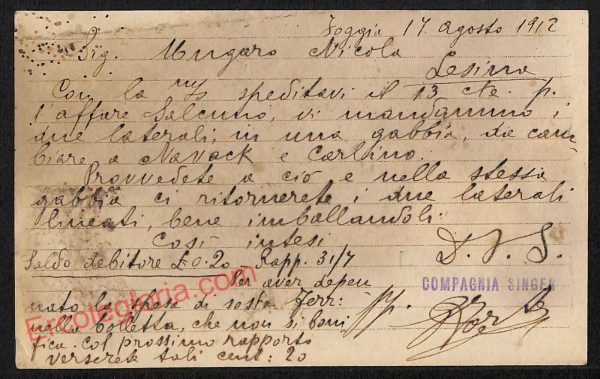 Foggia 17 agosto 1912
Sig. Ungaro Nicola
Lesina
Con la n/s speditavi il 13 cte. p.
l'affare Salcuno, vi mandammo i
due laterali, in una gabbia, da cam-
biare a Navack e Carlino.
Provvedete a ciò e nella stessa
gabbia ci ritornerete i due laterali
lineati, bene imballandoli.
Così intesi
Saldo debitore £ 0.20 - Rapp. 31/7
D. V. S.
COMPAGNIA SINGER
per aver depen
nato la spesa di sosta Ferr:
nella bolletta, che non si boni
fica. col prossimo rapporto
verserete tali cent: 20
pp.
Ercolegloria.com